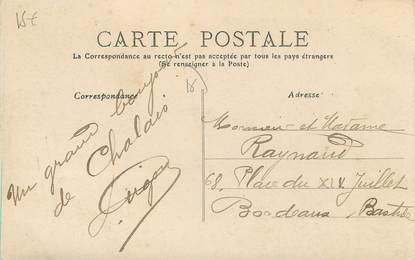 15€
CARTE POSTALE
La Correspondance au recto n'est pas acceptée par tous les pays étrangers
(Se renseigner à la Poste)
Correspondance
Adresse
15
Un grand bonjour
de Chalais
Monsieur et Madame
Raynaud
68, Place du XIV Juillet
Bordeaux Bastide